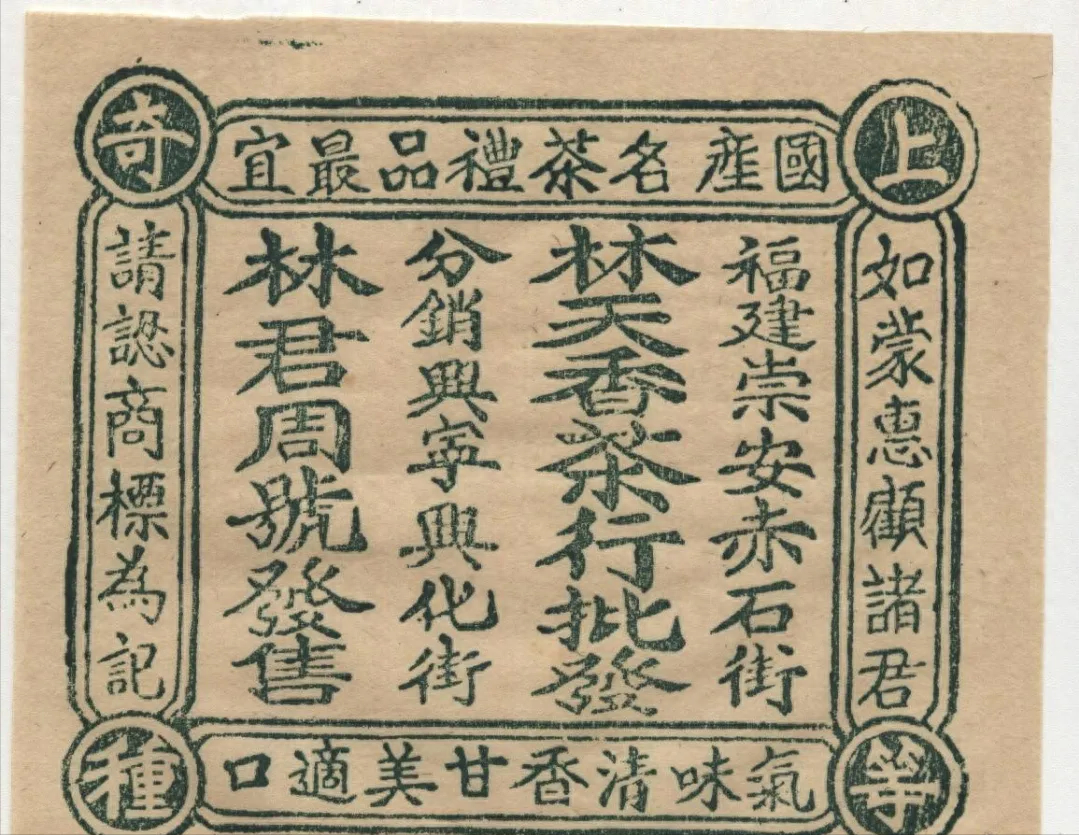 上等
奇種
國產名茶禮品最宜
如蒙惠顧諸君
福建崇安赤石街
林天香茶行批發
分銷興寧興化街
林君周號發售
請認商標為記
氣味清香甘美適口